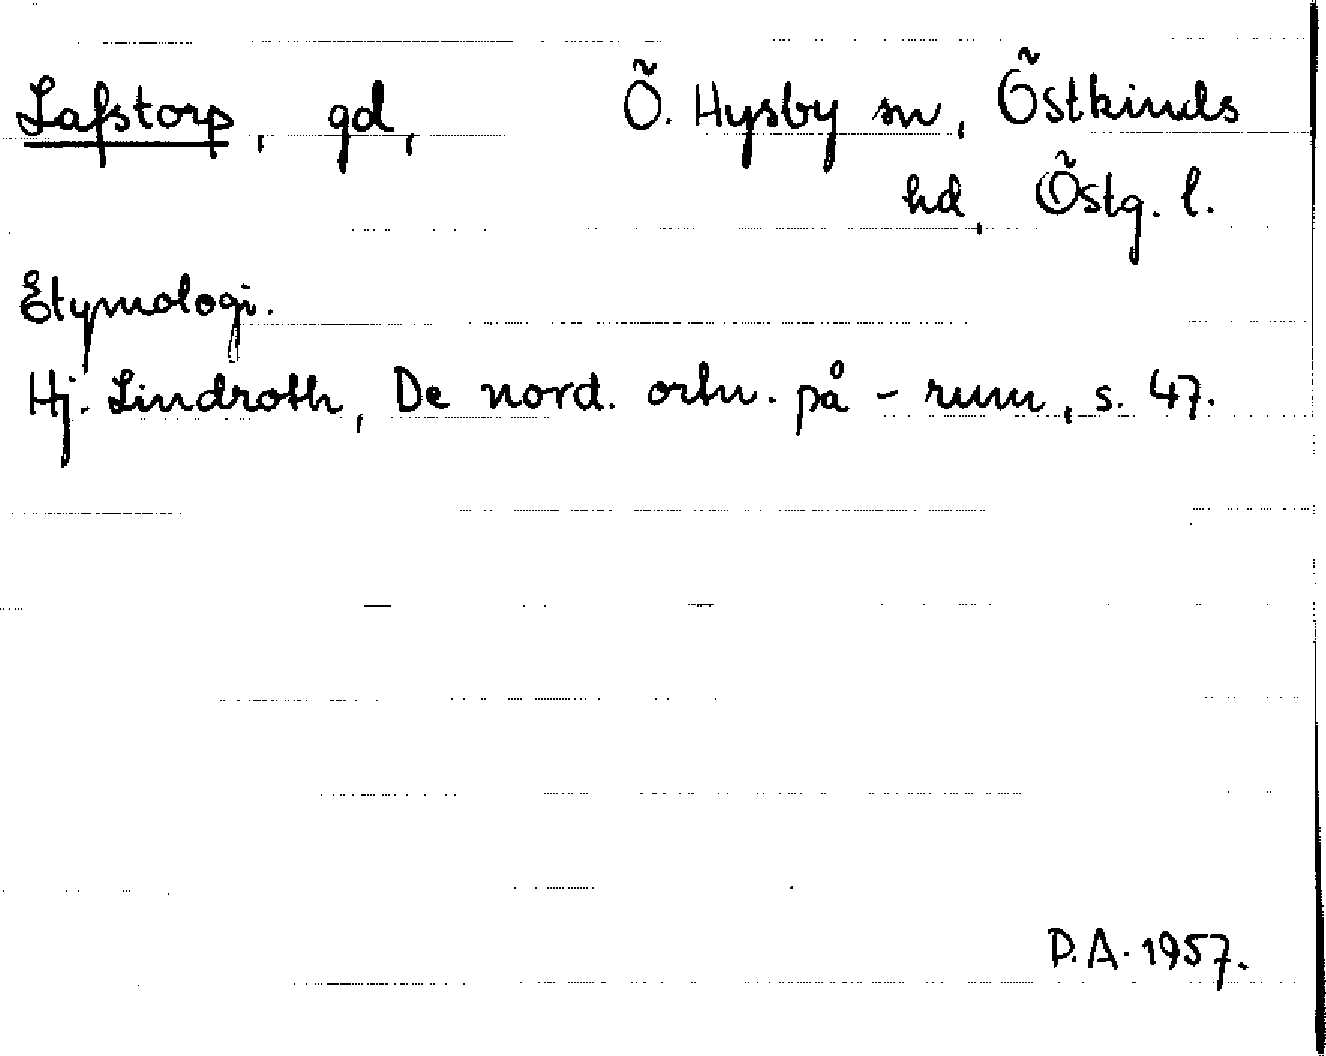 Lafstorp, gd, Ö. Hysby sn, Östkinds
hd, Östg. l.
Etymologi.
Hj. Lindroth, De nord. ortn. på -rum, s. 47.
D.A. 1957.